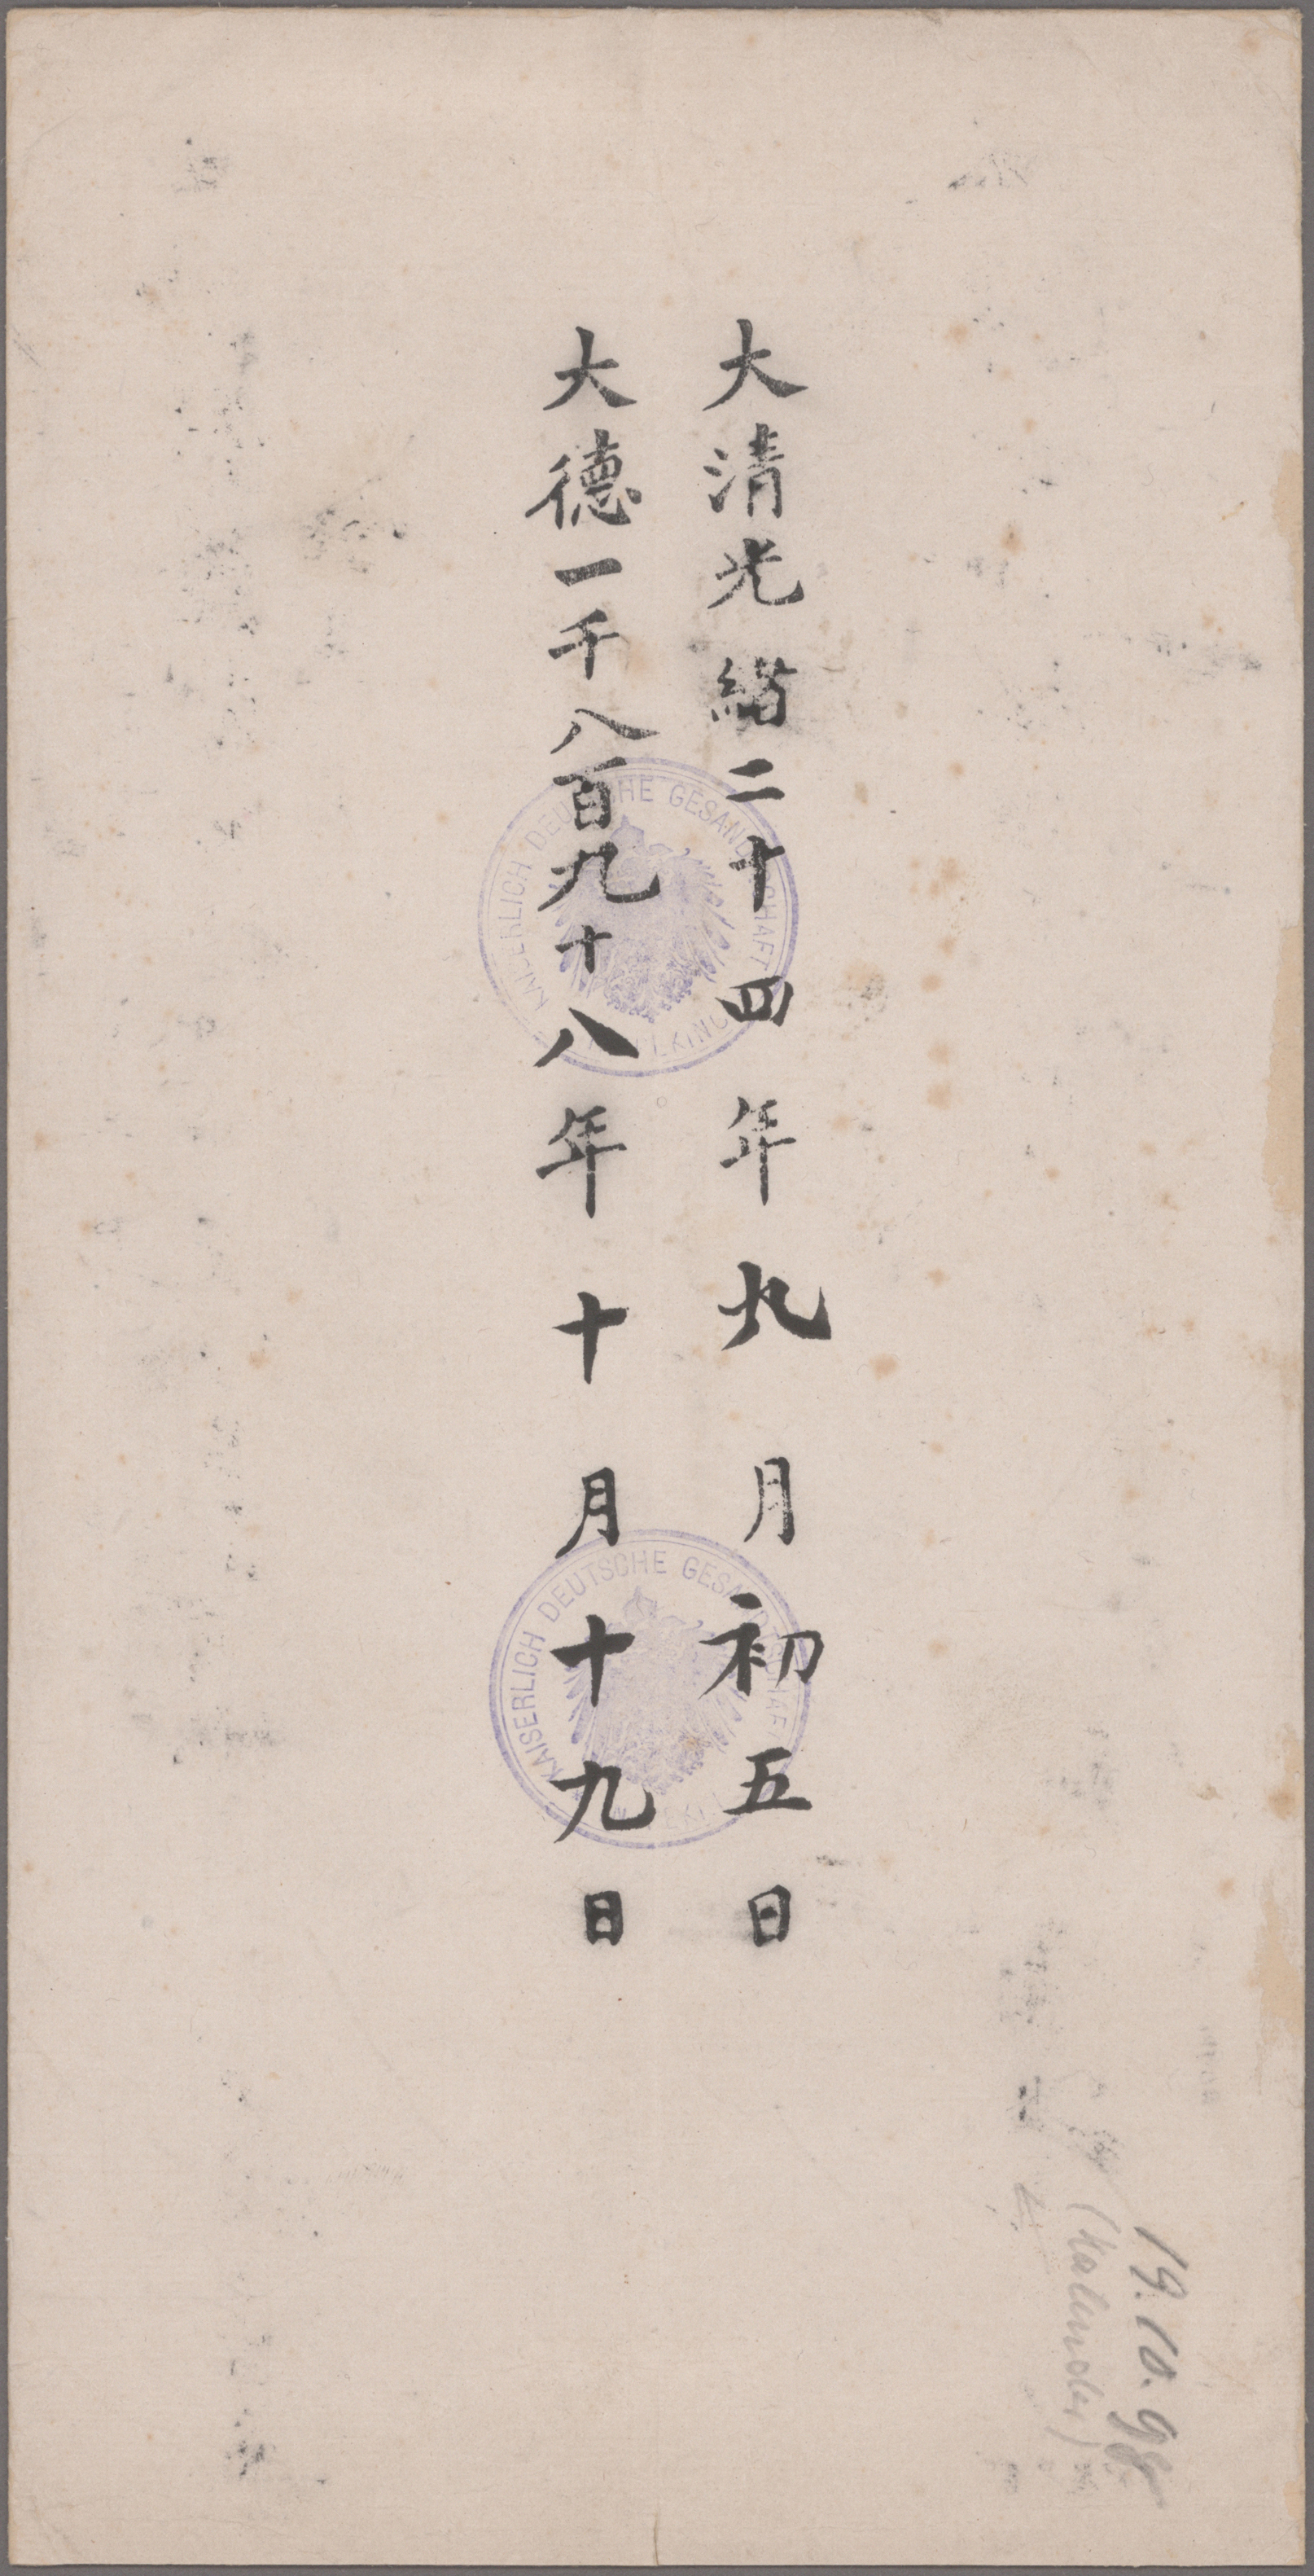 大清光緒二十四年九月初五日
大德一千八百九十八年十月十九日
KAISERLICH DEUTSCHE GESANDTSCHAFT PEKING
KAISERLICH DEUTSCHE GESANDTSCHAFT
19.10.98
(Kalender)